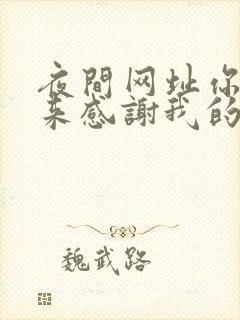 夜間网址你
来感謝我的
魏武路